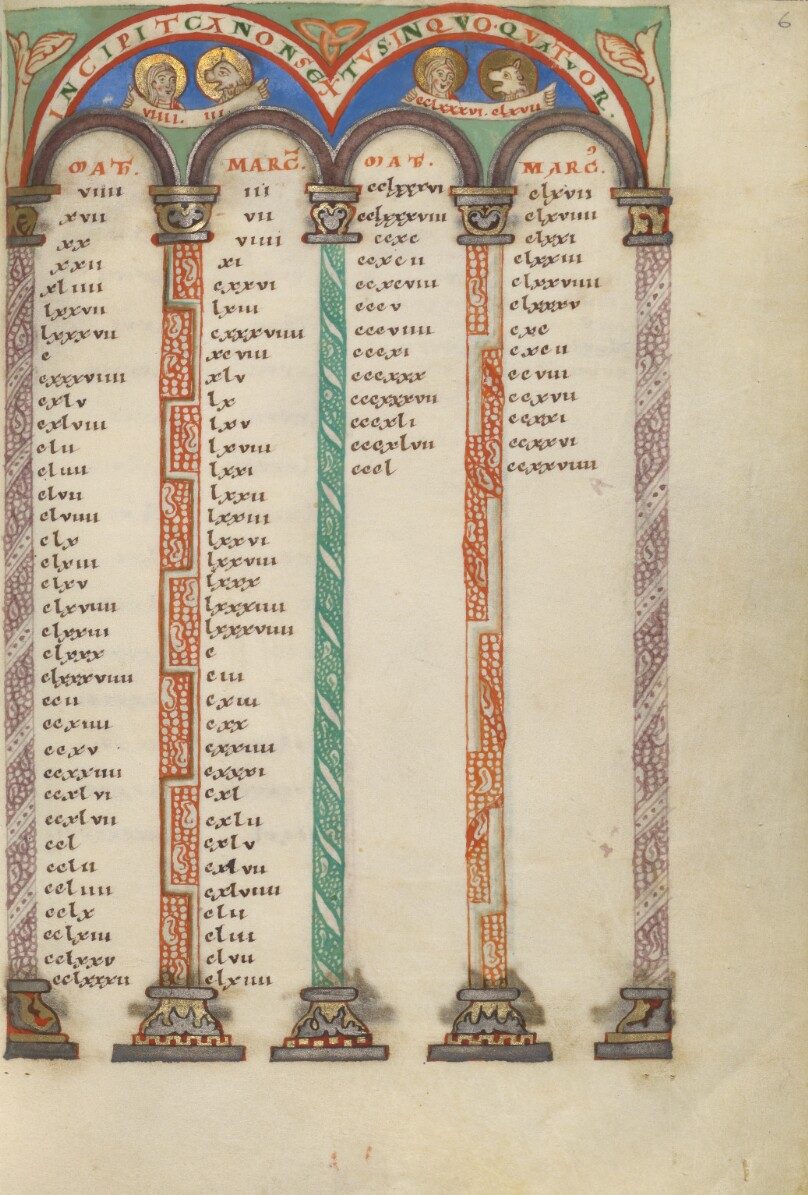 6
INCIPIT CANON SEXTVS·IN QVO·QVATVOR.
viiii. iii
cclxxxvi. clxvii
MAT.
viiii
xvii
xx
xxii
xliiii
lxxvii
lxxxvii
c
cxxxviiii
cxlv
cxlviii
clii
cliiii
clvii
clviiii
clx
clxiii
clxv
clxviiii
clxxiii
clxxx
clxxxviiii
ccii
ccxiiii
ccxv
ccxxiiii
ccxlvi
ccxlvii
ccl
cclii
ccliiii
cclx
cclxiii
cclxxv
cclxxxii
MARC.
iii
vii
viiii
xi
cxxvi
lxiii
cxxxviiii
xcviii
xlv
lx
lxv
lxviii
lxxi
lxxii
lxxiii
lxxvi
lxxviii
lxxx
lxxxiiii
lxxxviiii
c
ciii
cxiii
cxx
cxxiiii
cxxvi
cxl
cxlii
cxlv
cxlvii
cxlviiii
clii
cliii
clvii
clxiiii
MAT.
cclxxxvi
cclxxxviii
ccxc
ccxcii
ccxcviii
cccv
cccviiii
cccxi
cccxxx
cccxxxvii
cccxli
cccxlvii
cccl
MARC.
clxvii
clxviiii
clxxi
clxxiii
clxxviiii
clxxxv
cxc
cxcii
ccviii
ccxvii
ccxxi
ccxxvi
ccxxviiii